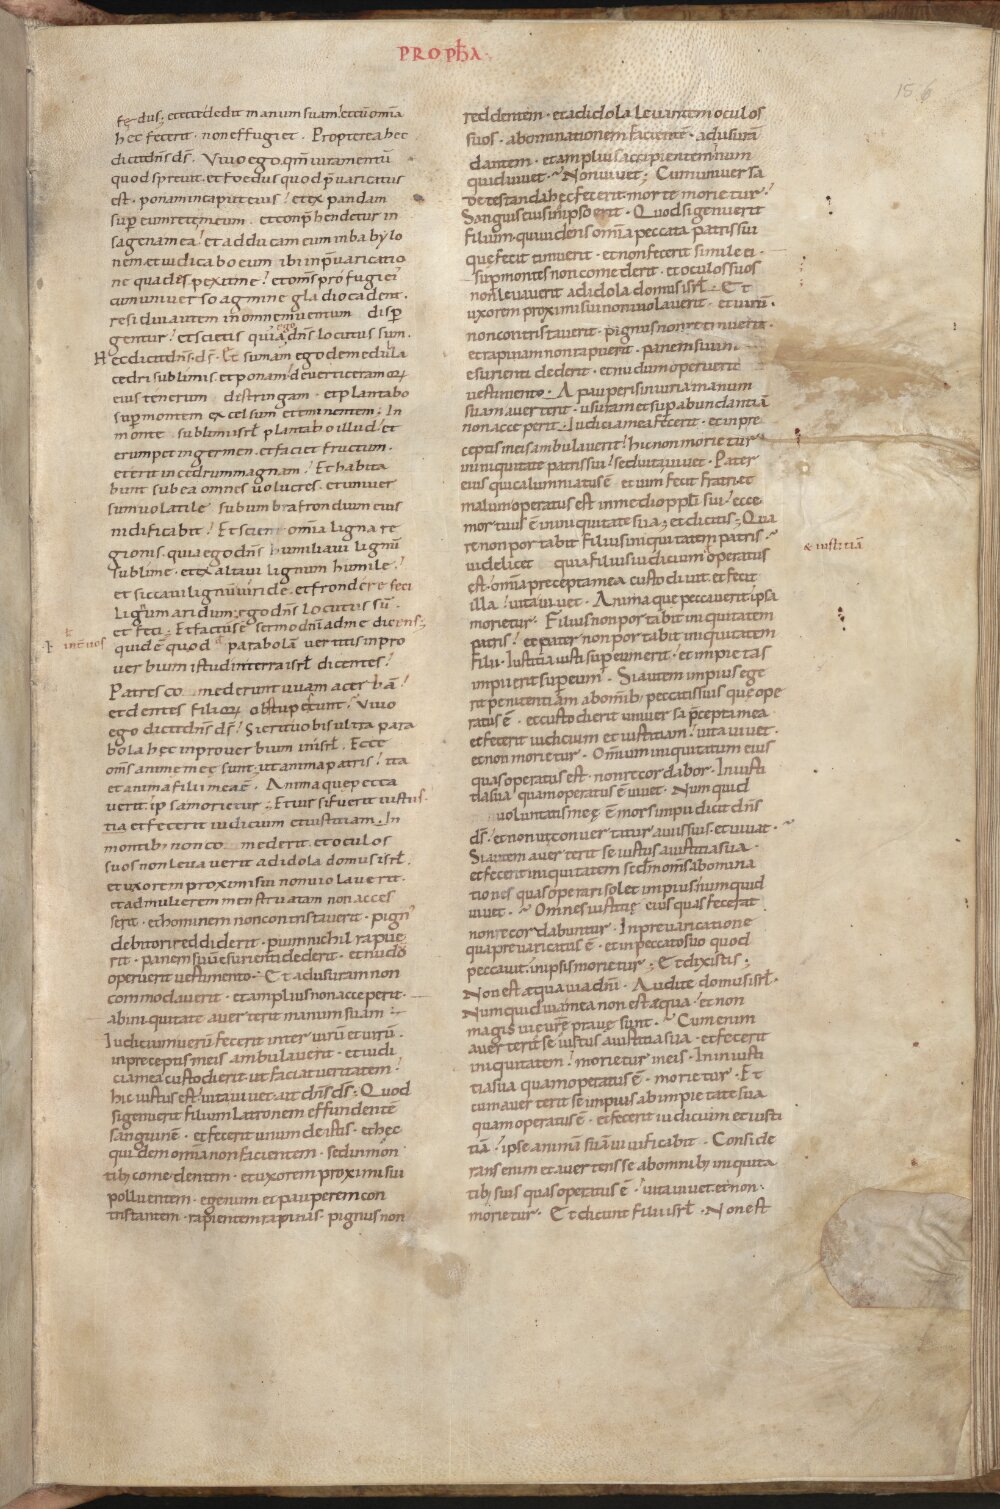 PROPHA
156
fędus; et ecce dedit manum suam! et cū omīa
hec fecerit · non effugiet · Propterea hec
dicit dn̄s ds̄ · Vivo ego · qm̄ iuramentū
quod sprevit · et foedus quod p̄varicatus
est · ponam in caput eius! et expandam
sup̄ eum rete meum · et conp̄hendetur in
sagena mea! et adducam eum in babylo
nem · et iudicabo eum ibi in p̄varicatio
ne qua despexit me! et om̄s profugi ei'
cum universo agmine gladio cadent ·
residui autem in omnem ventum disp̄
gentur! et scietis quia ego dn̄s locutus sum ·
Hec dicit dn̄s ds̄ · Et sumam ego de medulla
cedri sublimis · et ponam! de vertice ramorꝝ
eius tenerum destringam · et plantabo
sup̄ montem excelsum et eminentem; In
monte sublimi isrl̄ plantabo illud! et
erumpet in germen · et faciet fructum ·
et erit in cedrum magnam! Et habita
bunt sub ea omnes volucres · et univer
sum volatile · sub umbra frondium eius
nidificabit! Et scient omīa ligna re
gionis · quia ego dn̄s humiliavi lignū
sublime · et exaltavi lignum humile!
et siccavi lignū viride · et frondere feci
lignum aridum; ego dn̄s locutus sū ·
et feci; Et factus ē sermo dn̄i ad me dicens;
int̄ vos
quid ē quod parabolā vertitis in pro
verbium istud in terra isrl̄ dicentes!
Patres comederunt uvam acerbā!
et dentes filiorꝝ obstupescunt! Vivo
ego dicit dn̄s ds̄! Si erit vobis ultra para
bola hec in proverbium in isrl̄ · Ecce
om̄s anime meę sunt; ut anima patris! ita
et anima filii mea ē · Anima que pecca
verit · ipsa morietur; Et vir si fuerit iustus
tia et fecerit iudicium et iustitiam · In
montib; non comederit · et oculos
suos non levaverit ad idola domus isrl̄ ·
et uxorem proximi sui non violaverit ·
et ad mulierem menstruatam non acces
serit · et hominem non contristaverit · pign'
debitori reddiderit · p̄ vim nichil rapue
rit · panem suū esurienti dederit · et nudū
operuerit vestimento · Et ad usuram non
commodaverit · et amplius non acceperit ·
ab iniquitate averterit manum suam
Iudicium verū fecerit inter virū et virū ·
in preceptis meis ambulaverit · et iudi
cia mea custodierit · ut faciat veritatem!
hic iustus est! vita vivet · ait dn̄s ds̄; Quod
si genuerit filium latronem effundentē
sanguinē · et fecerit unum de istis · et hec
quidem omīa non facientem · sed in mon
tib; comedentem · et uxorem proximi sui
polluentem · egenum et pauperem con
tristantem · rapientem rapinas · pignus non
reddentem · et ad idola levantem oculos
suos · abominationem facientē · ad usurā
dantem · et amplius accipientem! num
quid vivet · Non vivet; Cum univer sa
detestanda hec fecerit · morte morietur!
Sanguis eius in ipso erit · Quod si genuerit
filium · qui videns omīa peccata patris sui
que fecit timuerit · et non fecerit simile ei ·
sup̄ montes non comederit · et oculos suos
non levaverit ad idola domus isrl̄ · Et
uxorem proximi sui non violaverit · et virū
non contristaverit · pignus non retinuerit ·
et rapinam non rapuerit · panem suum
esurienti dederit · et nudum operuerit
vestimento · A pauperis iniuria manum
suam averterit · usuram et sup̄abundantiā
non acceperit · Iudicia mea fecerit · et in pre
ceptis meis ambulaverit! hic non morietur
in iniquitate patris sui! sed vita vivet · Pater
eius qui calumniatus ē et vim fecit fratri · et
malum operatus est in medio pp̄li sui! ecce
mortuus ē in iniquitate sua; et dicitis; Qua
re non portabit filius iniquitatem patris ·
videlicet quia filius iudicium operatus
& iustitiā
est · omīa precepta mea custodivit · et fecit
illa! vita vivet · Anima que peccaverit ipsa
morietur · Filius non portabit iniquitatem
patris! et pater non portabit iniquitatem
filii · Iustitia iusti sup̄ eum erit · et impietas
impii erit sup̄ eum · Si autem impius ege
rit penitentiam ab omīb; peccatis suis que ope
ratus ē · et custodierit univer sa p̄cepta mea
et fecerit iudicium et iustitiam! vita vivet ·
et non morietur · Omnium iniquitatum eius
quas operatus est · non recordabor · In iusti
tia sua quam operatus ē vivet · Numquid
voluntatis meę ē mors impii dicit dn̄s
ds̄ · et non ut convertatur a viis suis · et vivat ·
Si autem averterit se iustus a iustitia sua ·
et fecerit iniquitatem scd̄m om̄s abomina
tiones quas operari solet impius! numquid
vivet · Omnes iustitię eius quas fecerat
non recordabuntur · In prevaricatione
qua prevaricatus ē · et in peccato suo quod
peccavit · in ipsis morietur; Et dixistis;
Non est æqua via dn̄i · Audite domus isrl̄ ·
Numquid via mea non est æqua · et non
magis vie vr̄e prave sunt · Cum enim
averterit se iustus a iustitia sua · et fecerit
iniquitatem! morietur in eis · In iniusti
tia sua quam operatus ē · morietur · Et
cum averterit se impius ab impietate sua
quam operatus ē · et fecerit iudicium et iusti
tiā! ipse animā suā vivificabit · Conside
rans enim et avertens se ab omnib; iniquita
tib; suis quas operatus ē! vita vivet · et non ·
morietur · Et dicunt filii isrl̄ · Non est